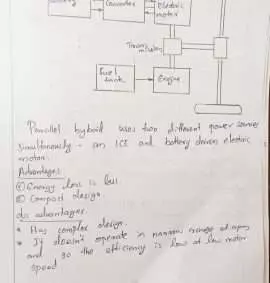 Battery
Converter
Electric
motor
Trans
mission
Fuel
tank
Engine
Parallel hybrid uses two different power sources
simultaneously - an ICE and battery driven electric
motor.
Advantages
① Energy loss is less.
② Compact design.
dis advantages.
* Has complex design.
* It doesn't operate in narrow range of rpm
and so the efficiency is low at low motor
speed